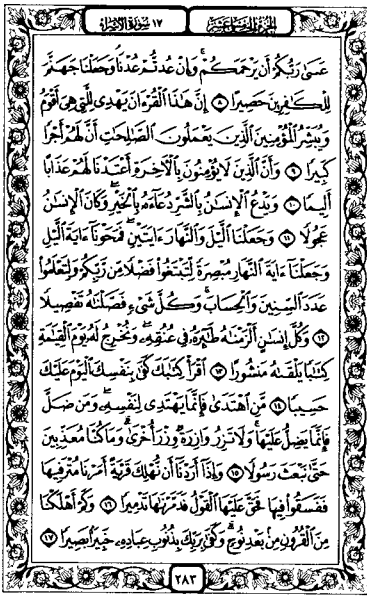 الجزء الخامس عشر
١٧ سورة الإسراء
عَسَىٰ رَبُّكُمْ أَن يَرْحَمَكُمْ ۚ وَإِنْ عُدتُّمْ عُدْنَا ۘ وَجَعَلْنَا جَهَنَّمَ
لِلْكَـٰفِرِينَ حَصِيرًا ٨ إِنَّ هَـٰذَا ٱلْقُرْءَانَ يَهْدِى لِلَّتِى هِىَ أَقْوَمُ
وَيُبَشِّرُ ٱلْمُؤْمِنِينَ ٱلَّذِينَ يَعْمَلُونَ ٱلصَّـٰلِحَـٰتِ أَنَّ لَهُمْ أَجْرًا
كَبِيرًا ٩ وَأَنَّ ٱلَّذِينَ لَا يُؤْمِنُونَ بِٱلْـَٔاخِرَةِ أَعْتَدْنَا لَهُمْ عَذَابًا
أَلِيمًا ١٠ وَيَدْعُ ٱلْإِنسَـٰنُ بِٱلشَّرِّ دُعَآءَهُۥ بِٱلْخَيْرِ ۖ وَكَانَ ٱلْإِنسَـٰنُ
عَجُولًا ١١ وَجَعَلْنَا ٱلَّيْلَ وَٱلنَّهَارَ ءَايَتَيْنِ ۖ فَمَحَوْنَآ ءَايَةَ ٱلَّيْلِ
وَجَعَلْنَآ ءَايَةَ ٱلنَّهَارِ مُبْصِرَةً لِّتَبْتَغُوا۟ فَضْلًا مِّن رَّبِّكُمْ وَلِتَعْلَمُوا۟
عَدَدَ ٱلسِّنِينَ وَٱلْحِسَابَ ۚ وَكُلَّ شَىْءٍ فَصَّلْنَـٰهُ تَفْصِيلًا
١٢ وَكُلَّ إِنسَـٰنٍ أَلْزَمْنَـٰهُ طَـٰٓئِرَهُۥ فِى عُنُقِهِۦ ۖ وَنُخْرِجُ لَهُۥ يَوْمَ ٱلْقِيَـٰمَةِ
كِتَـٰبًا يَلْقَىٰهُ مَنشُورًا ١٣ ٱقْرَأْ كِتَـٰبَكَ كَفَىٰ بِنَفْسِكَ ٱلْيَوْمَ عَلَيْكَ
حَسِيبًا ١٤ مَّنِ ٱهْتَدَىٰ فَإِنَّمَا يَهْتَدِى لِنَفْسِهِۦ ۖ وَمَن ضَلَّ
فَإِنَّمَا يَضِلُّ عَلَيْهَا ۚ وَلَا تَزِرُ وَازِرَةٌ وِزْرَ أُخْرَىٰ ۗ وَمَا كُنَّا مُعَذِّبِينَ
حَتَّىٰ نَبْعَثَ رَسُولًا ١٥ وَإِذَآ أَرَدْنَآ أَن نُّهْلِكَ قَرْيَةً أَمَرْنَا مُتْرَفِيهَا
فَفَسَقُوا۟ فِيهَا فَحَقَّ عَلَيْهَا ٱلْقَوْلُ فَدَمَّرْنَـٰهَا تَدْمِيرًا ١٦ وَكَمْ أَهْلَكْنَا
مِنَ ٱلْقُرُونِ مِنۢ بَعْدِ نُوحٍ ۗ وَكَفَىٰ بِرَبِّكَ بِذُنُوبِ عِبَادِهِۦ خَبِيرًۢا بَصِيرًا ١٧
٢٨٣